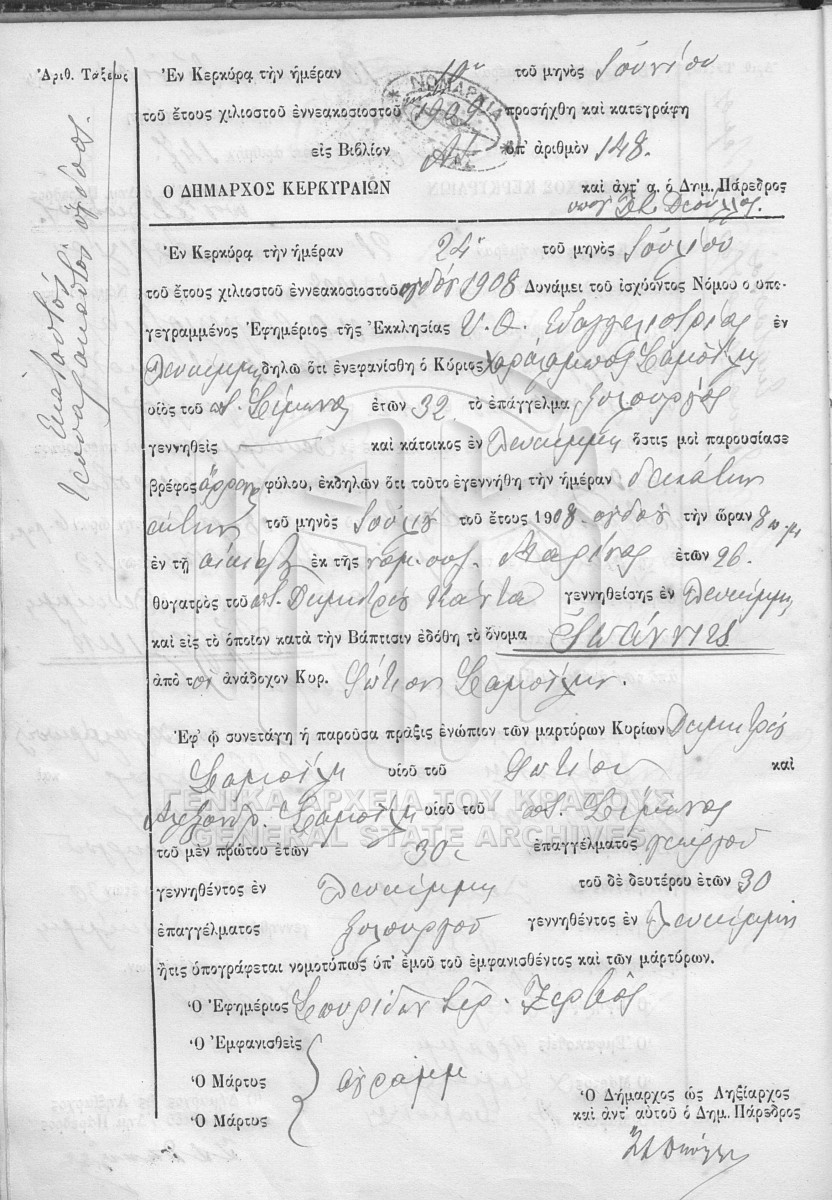 Ἀριθ. Τάξεως
Ἑκατοστὸν
τεσσαρακοστὸν ὄγδοον.
Ἐν Κερκύρᾳ τὴν ἡμέραν 10ην τοῦ μηνὸς Ἰουνίου
τοῦ ἔτους χιλιοστοῦ ἐννεακοσιοστοῦ 1909 προσήχθη καὶ κατεγράφη
εἰς Βιβλίον ὑπ' ἀριθμὸν 148.
ΝΟΜΑΡΧΙΑ
Ο ΔΗΜΑΡΧΟΣ ΚΕΡΚΥΡΑΙΩΝ καὶ ἀντ' α. ὁ Δημ. Πάρεδρος
Ἐν Κερκύρᾳ τὴν ἡμέραν 24 τοῦ μηνὸς Ἰουλίου
τοῦ ἔτους χιλιοστοῦ ἐννεακοσιοστοῦ ὀγδόου 1908 Δυνάμει τοῦ ἰσχύοντος Νόμου ο ὑπο-
γεγραμμένος Ἐφημέριος τῆς Ἐκκλησίας Υ. Θ. Εὐαγγελιστρίας ἐν
Λευκίμμῃ δηλῶ ὅτι ἐνεφανίσθη ὁ Κύριος Χαράλαμπος Σαμοΐλης
υἱὸς τοῦ ποτ. Σίμωνος ἐτῶν 32 τὸ ἐπάγγελμα ξυλουργός
γεννηθεὶς καὶ κάτοικος ἐν Λευκίμμῃ ὅστις μοὶ παρουσίασε
βρέφος ἄρρενος φύλου, ἐκδηλῶν ὅτι τοῦτο ἐγεννήθη τὴν ἡμέραν δεκάτην
τοῦ μηνὸς Ἰουλίου τοῦ ἔτους 1908 ὀγδόου τὴν ὥραν 8 π.μ.
ἐν τῇ οἰκίᾳ ἐκ τῆς νομ. συζ. Μαρίνας ἐτῶν 26.
θυγατρὸς τοῦ ποτ. Δημητρίου Πάντα γεννηθείσης ἐν Λευκίμμῃ
καὶ εἰς τὸ ὁποῖον κατὰ τὴν Βάπτισιν ἐδόθη τὸ ὄνομα Ἰωάννης
ἀπὸ τὸν ἀνάδοχον Κυρ. Φώτιον Σαμοΐλην.
Ἐφ' ᾧ συνετάγη ἡ παροῦσα πρᾶξις ἐνώπιον τῶν μαρτύρων Κυρίων Δημητρίου
Σαμοΐλη υἱοῦ τοῦ Φωτίου καὶ
Ἀλεξάνδρ. Σαμοΐλη υἱοῦ τοῦ ποτ. Σίμωνος
ΓΕΝΙΚΑ ΑΡΧΕΙΑ ΤΟΥ ΚΡΑΤΟΥΣ
GENERAL STATE ARCHIVES
τοῦ μὲν πρώτου ἐτῶν 30 ἐπαγγέλματος γεωργοῦ
γεννηθέντος ἐν Λευκίμμῃ τοῦ δὲ δευτέρου ἐτῶν 30
ἐπαγγέλματος ξυλουργοῦ γεννηθέντος ἐν Λευκίμμῃ
ἥτις ὑπογράφεται νομοτύπως ὑπ' ἐμοῦ τοῦ ἐμφανισθέντος καὶ τῶν μαρτύρων.
Ὁ Ἐφημέριος Σπυρίδων ἱερ. Ζερβὸς
Ὁ Ἐμφανισθεὶς
Ὁ Μάρτυς ἀγράμμ
Ὁ Μάρτυς
Ὁ Δήμαρχος ὡς Ληξίαρχος
καὶ ἀντ' αὐτοῦ ὁ Δημ. Πάρεδρος